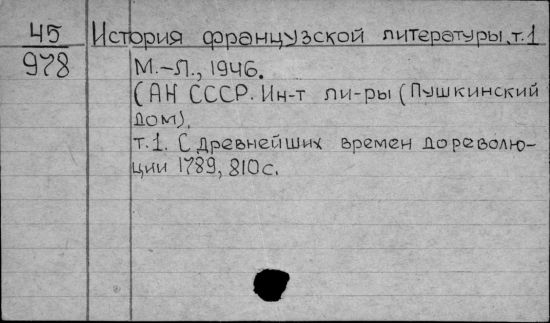 45 История французской литературы, т.1
978 М.-Л., 1946.
(АН СССР. Ин-т ли-ры (Пушкинский
дом).
т.1. С древнейших времен до револю-
ции 1789, 810с.